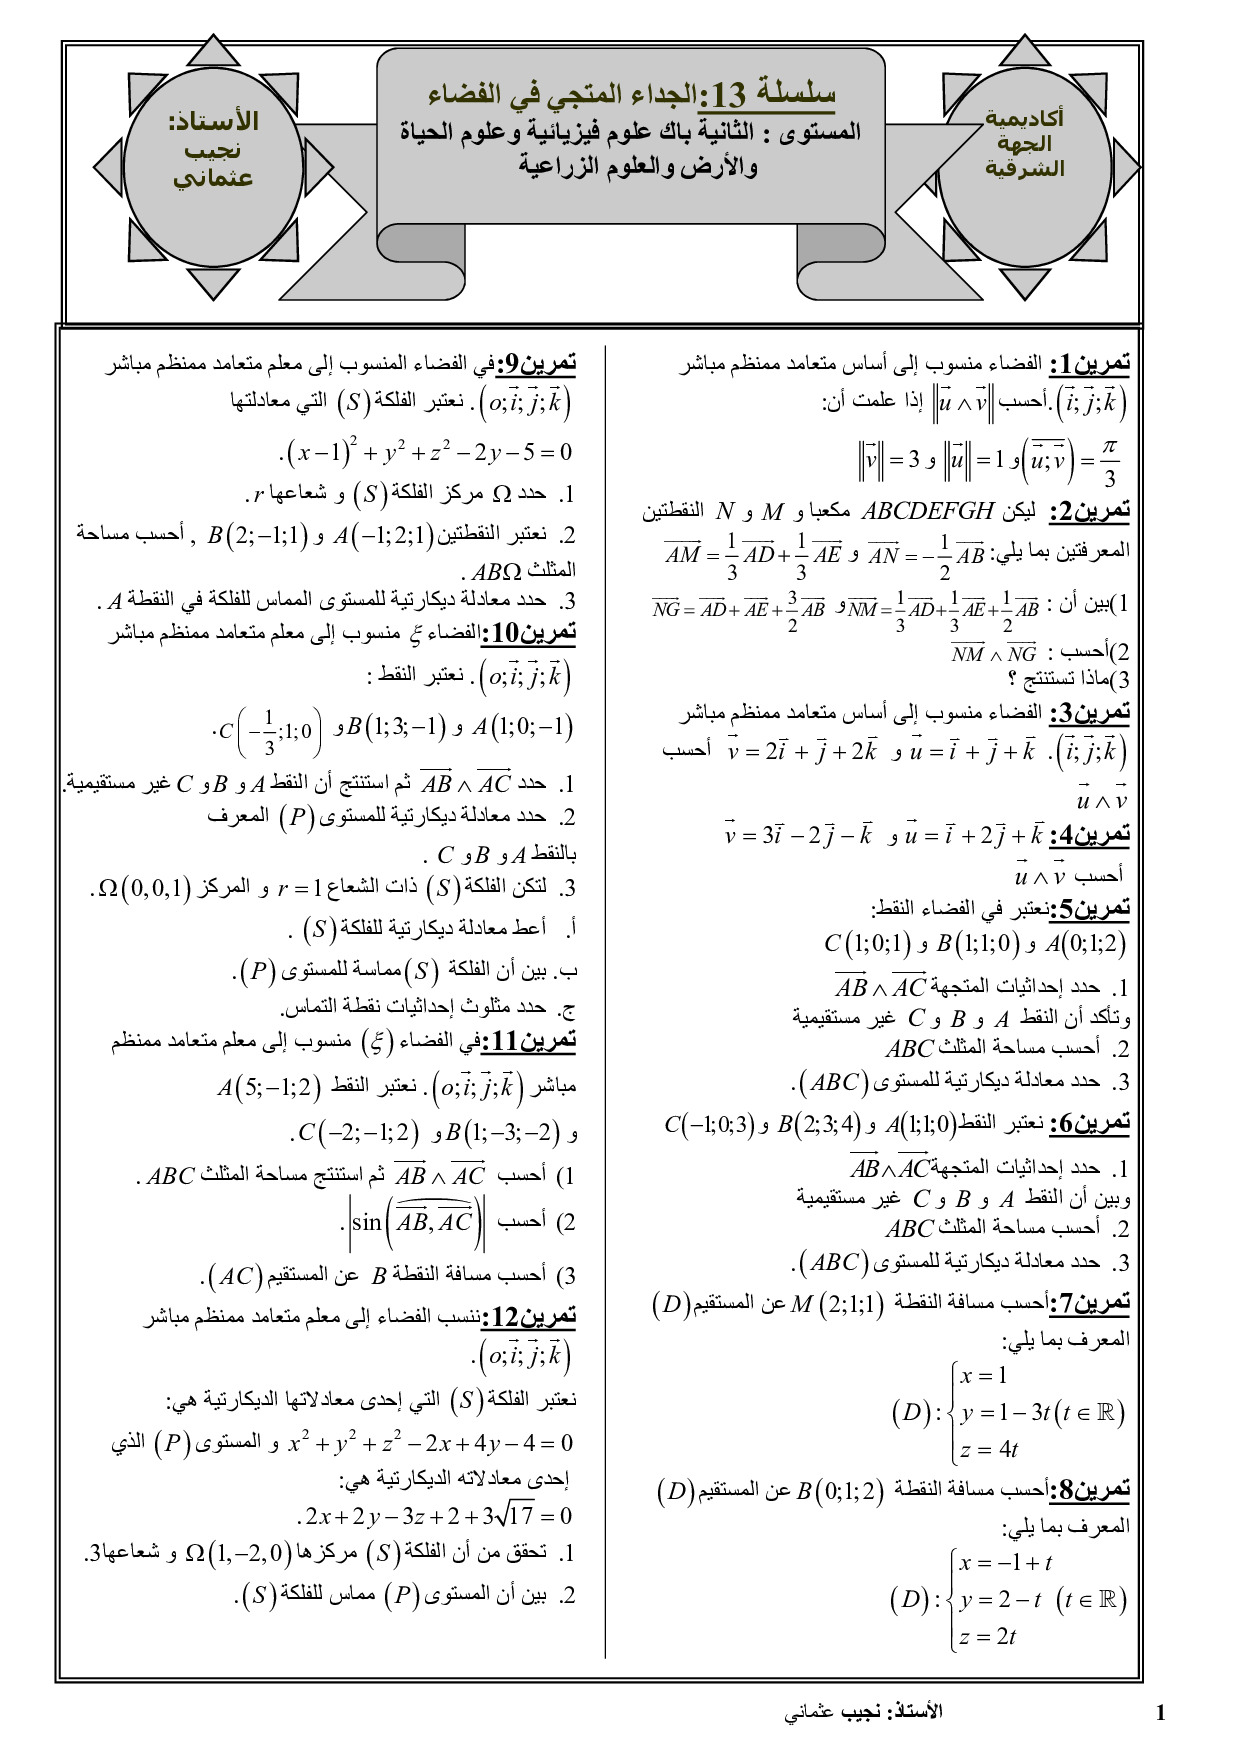 أكاديمية
الجهة
الشرقية
سلسلة 13:الجداء المتجي في الفضاء
المستوى : الثانية باك علوم فيزيائية وعلوم الحياة
والأرض والعلوم الزراعية
الأستاذ:
نجيب
عثماني
تمرين1: الفضاء منسوب إلى أساس متعامد ممنظم مباشر
(i⃗; j⃗; k⃗).أحسب ‖u⃗ ∧ v⃗‖ إذا علمت أن:
(u⃗; v⃗) = π/3 و ‖u⃗‖ = 1 و ‖v⃗‖ = 3
تمرين2: ليكن ABCDEFGH مكعبا و M و N النقطتين
المعرفتين بما يلي: AN = −1/2 AB و AM = 1/3 AD + 1/3 AE
1)بين أن : NM = 1/3 AD + 1/3 AE + 1/2 AB و NG = AD + AE + 3/2 AB
2)أحسب : NM ∧ NG
3)ماذا تستنتج ؟
تمرين3: الفضاء منسوب إلى أساس متعامد ممنظم مباشر
(i⃗; j⃗; k⃗). u⃗ = i⃗ + j⃗ + k⃗ و v⃗ = 2i⃗ + j⃗ + 2k⃗ أحسب
u⃗ ∧ v⃗
تمرين4: u⃗ = i⃗ + 2j⃗ + k⃗ و v⃗ = 3i⃗ − 2j⃗ − k⃗
أحسب u⃗ ∧ v⃗
تمرين5:نعتبر في الفضاء النقط:
A(0;1;2) و B(1;1;0) و C(1;0;1)
1. حدد إحداثيات المتجهة AB ∧ AC
وتأكد أن النقط A و B و C غير مستقيمية
2. أحسب مساحة المثلث ABC
3. حدد معادلة ديكارتية للمستوى (ABC).
تمرين6: نعتبر النقط A(1;1;0) و B(2;3;4) و C(−1;0;3)
1. حدد إحداثيات المتجهة AB ∧ AC
وبين أن النقط A و B و C غير مستقيمية
2. أحسب مساحة المثلث ABC
3. حدد معادلة ديكارتية للمستوى (ABC).
تمرين7:أحسب مسافة النقطة M(2;1;1) عن المستقيم (D)
المعرف بما يلي:
x = 1
(D): y = 1 − 3t (t ∈ ℝ)
z = 4t
تمرين8:أحسب مسافة النقطة B(0;1;2) عن المستقيم (D)
المعرف بما يلي:
x = −1 + t
(D): y = 2 − t (t ∈ ℝ)
z = 2t
تمرين9:في الفضاء المنسوب إلى معلم متعامد ممنظم مباشر
(o; i⃗; j⃗; k⃗). نعتبر الفلكة (S) التي معادلتها
(x − 1)² + y² + z² − 2y − 5 = 0.
1. حدد Ω مركز الفلكة (S) و شعاعها r.
2. نعتبر النقطتين A(−1;2;1) و B(2;−1;1) , أحسب مساحة
المثلث ABΩ .
3. حدد معادلة ديكارتية للمستوى المماس للفلكة في النقطة A .
تمرين10:الفضاء ξ منسوب إلى معلم متعامد ممنظم مباشر
(o; i⃗; j⃗; k⃗). نعتبر النقط :
A(1;0;−1) و B(1;3;−1) و C(−1/3;1;0).
1. حدد AB ∧ AC ثم استنتج أن النقط A و B و C غير مستقيمية.
2. حدد معادلة ديكارتية للمستوى (P) المعرف
بالنقط A و B و C .
3. لتكن الفلكة (S) ذات الشعاع r = 1 و المركز Ω(0,0,1).
أ. أعط معادلة ديكارتية للفلكة (S) .
ب. بين أن الفلكة (S) مماسة للمستوى (P).
ج. حدد مثلوث إحداثيات نقطة التماس.
تمرين11:في الفضاء (ξ) منسوب إلى معلم متعامد ممنظم
مباشر (o; i⃗; j⃗; k⃗). نعتبر النقط A(5;−1;2)
و B(1;−3;−2) و C(−2;−1;2).
1) أحسب AB ∧ AC ثم استنتج مساحة المثلث ABC .
2) أحسب |sin(AB, AC)|.
3) أحسب مسافة النقطة B عن المستقيم (AC).
تمرين12:ننسب الفضاء إلى معلم متعامد ممنظم مباشر
(o; i⃗; j⃗; k⃗).
نعتبر الفلكة (S) التي إحدى معادلاتها الديكارتية هي:
x² + y² + z² − 2x + 4y − 4 = 0 و المستوى (P) الذي
إحدى معادلاته الديكارتية هي:
2x + 2y − 3z + 2 + 3√17 = 0.
1. تحقق من أن الفلكة (S) مركزها Ω(1,−2,0) و شعاعها3.
2. بين أن المستوى (P) مماس للفلكة (S).
الأستاذ: نجيب عثماني
1